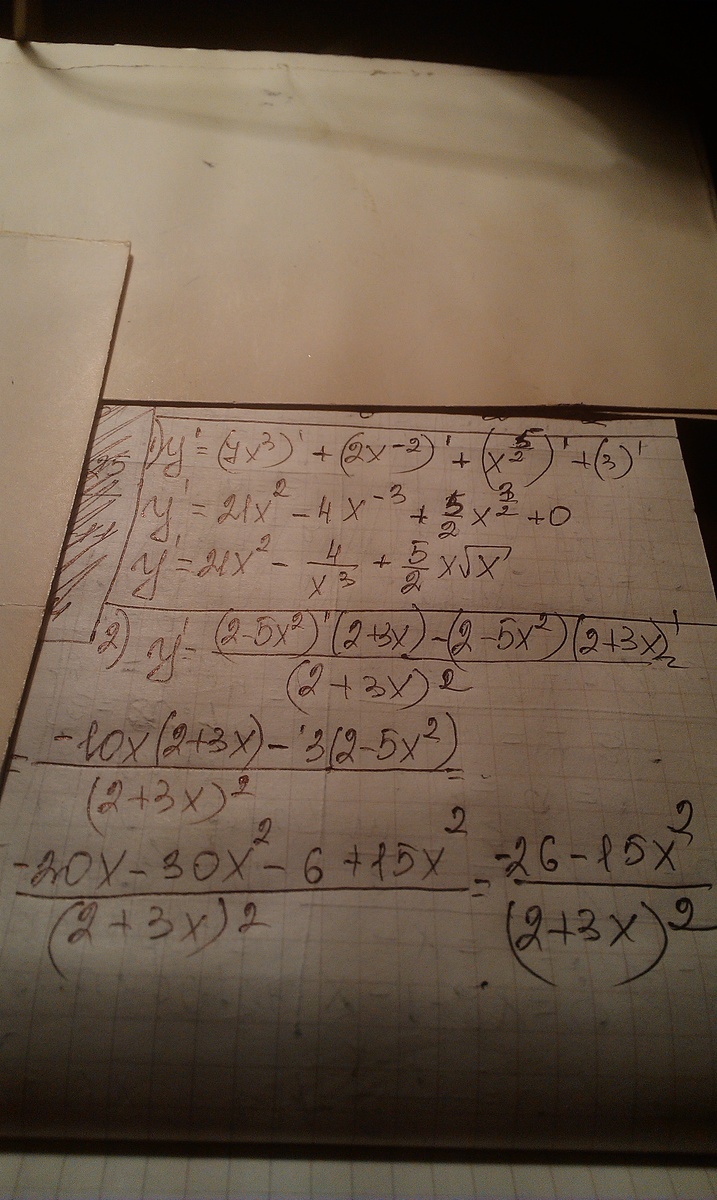 1) y' = (7x³)' + (2x⁻²)' + (x^(5/2))' + (3)'
y' = 21x² - 4x⁻³ + 5/2 x^(3/2) + 0
y' = 21x² - 4/x³ + 5/2 x√x
2) y' = ((2-5x²)'(2+3x) - (2-5x²)(2+3x)')/(2+3x)² =
= (-10x(2+3x) - 3(2-5x²))/(2+3x)² =
(-20x - 30x² - 6 + 15x²)/(2+3x)² = (-26 - 15x²)/(2+3x)²